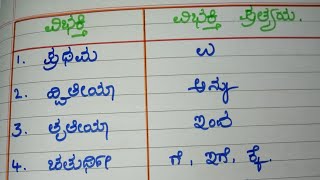 ವಿಭಕ್ತಿ ವಿಭಕ್ತಿ ಪ್ರತ್ಯಯ.
1. ಪ್ರಥಮ ಉ
2. ದ್ವಿತೀಯಾ ಅನ್ನು
3. ತೃತೀಯಾ ಇಂದ
4. ಚತುರ್ಥೀ ಗೆ, ಇಗೆ, ಕ್ಕೆ.